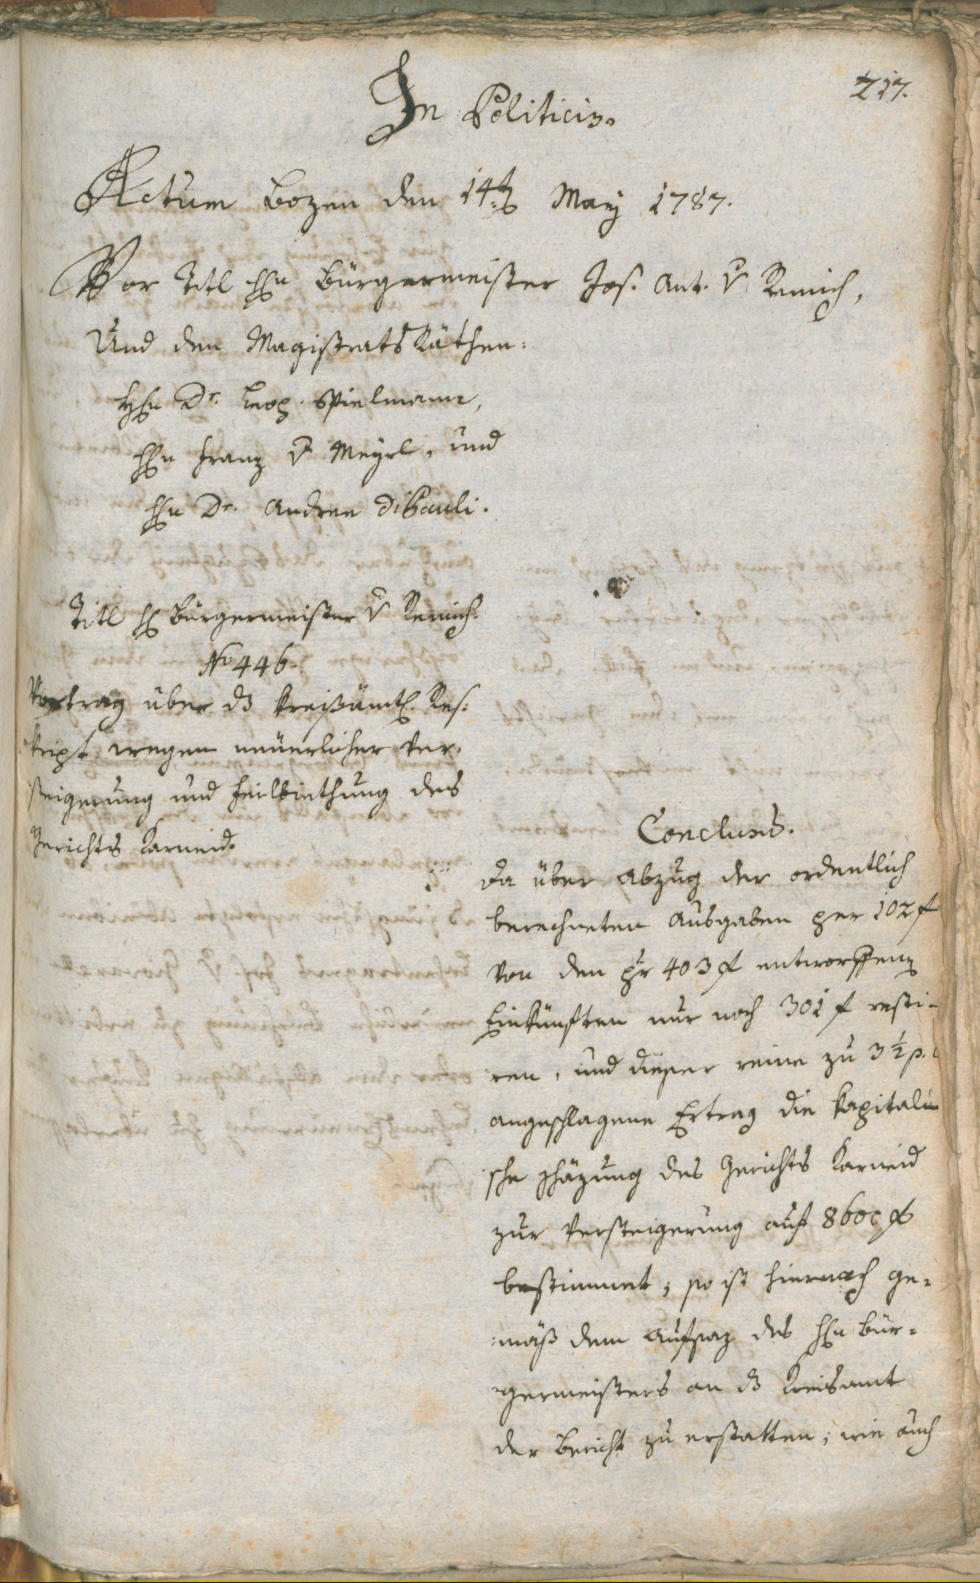 217.
In Politicis.
Actum Bozen den 14t May 1787.
Vor Titl Hn Bürgermeister Jos. Ant. v Remich,
Und den Magistrats Räthen:
Hhn Dr. Leop. Spielmann,
Hn Franz v Meyrl, und
Hn Dr. Andree DiPauli.
Titl H Bürgermeister v Remich.
No 446.
Vortrag über ds kreisämtl. Res:
kript wegen neüerlicher Ver:
steigerung und Feilbiethung des
Gerichts Karneid.
Conclus.
Da über Abzug der ordentlich
berechneten Ausgaben per 102 f
von den pr 403 f entworffenen
Einkünften nur noch 301 f resti-
ren, und dieser reine zu 3 ½ p.
angeschlagene Ertrag die kapitali
sche Schäzung des Gerichts Karneid
zur Versteigerung auf 8600 f
bestimmet; so ist hiernach ge-
mäß dem Aufsaz des Hn Bür-
germeisters an ds Kreisamt
der Bericht zu erstatten; wie auch